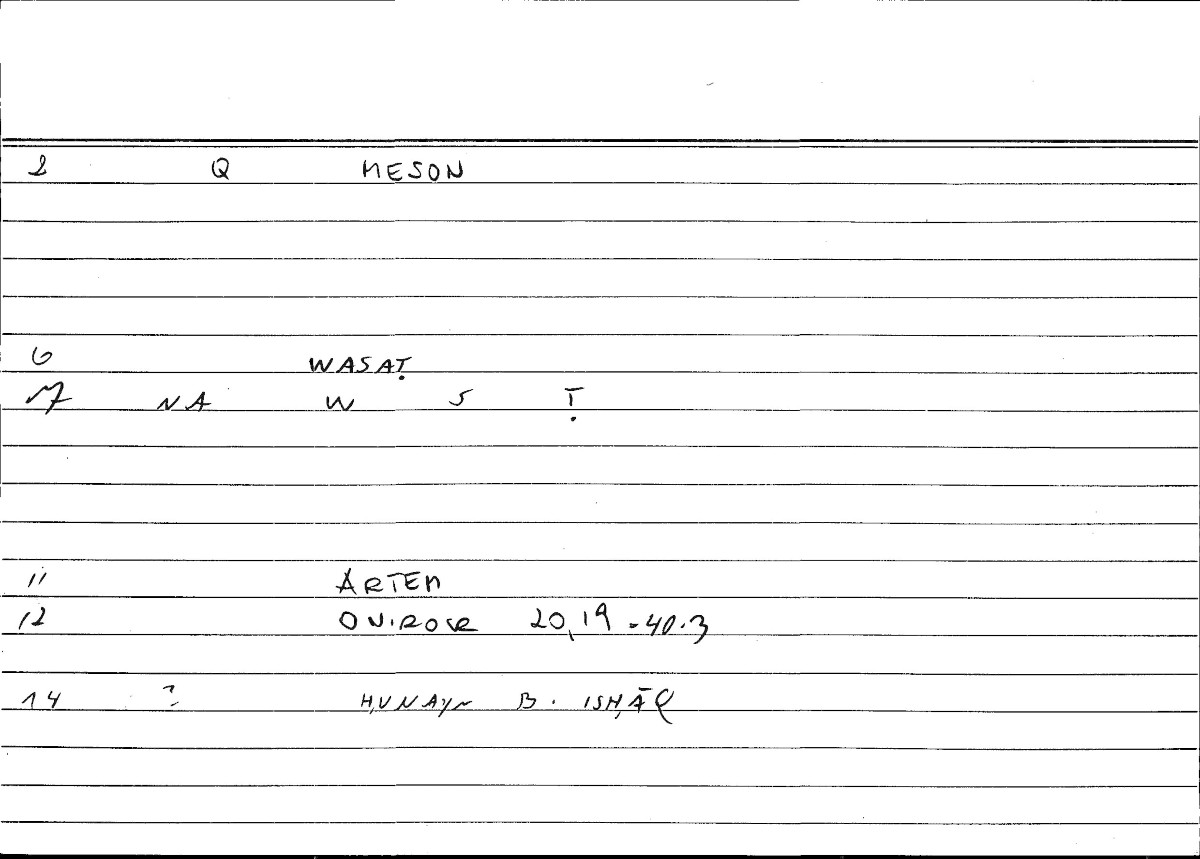 2 Q MESON
6 WASAṬ
7 NA W S Ṭ
11 ARTEM
12 ONIROCR 20,19 = 40.3
14 ? ḤUNAYN B. ISḤĀQ